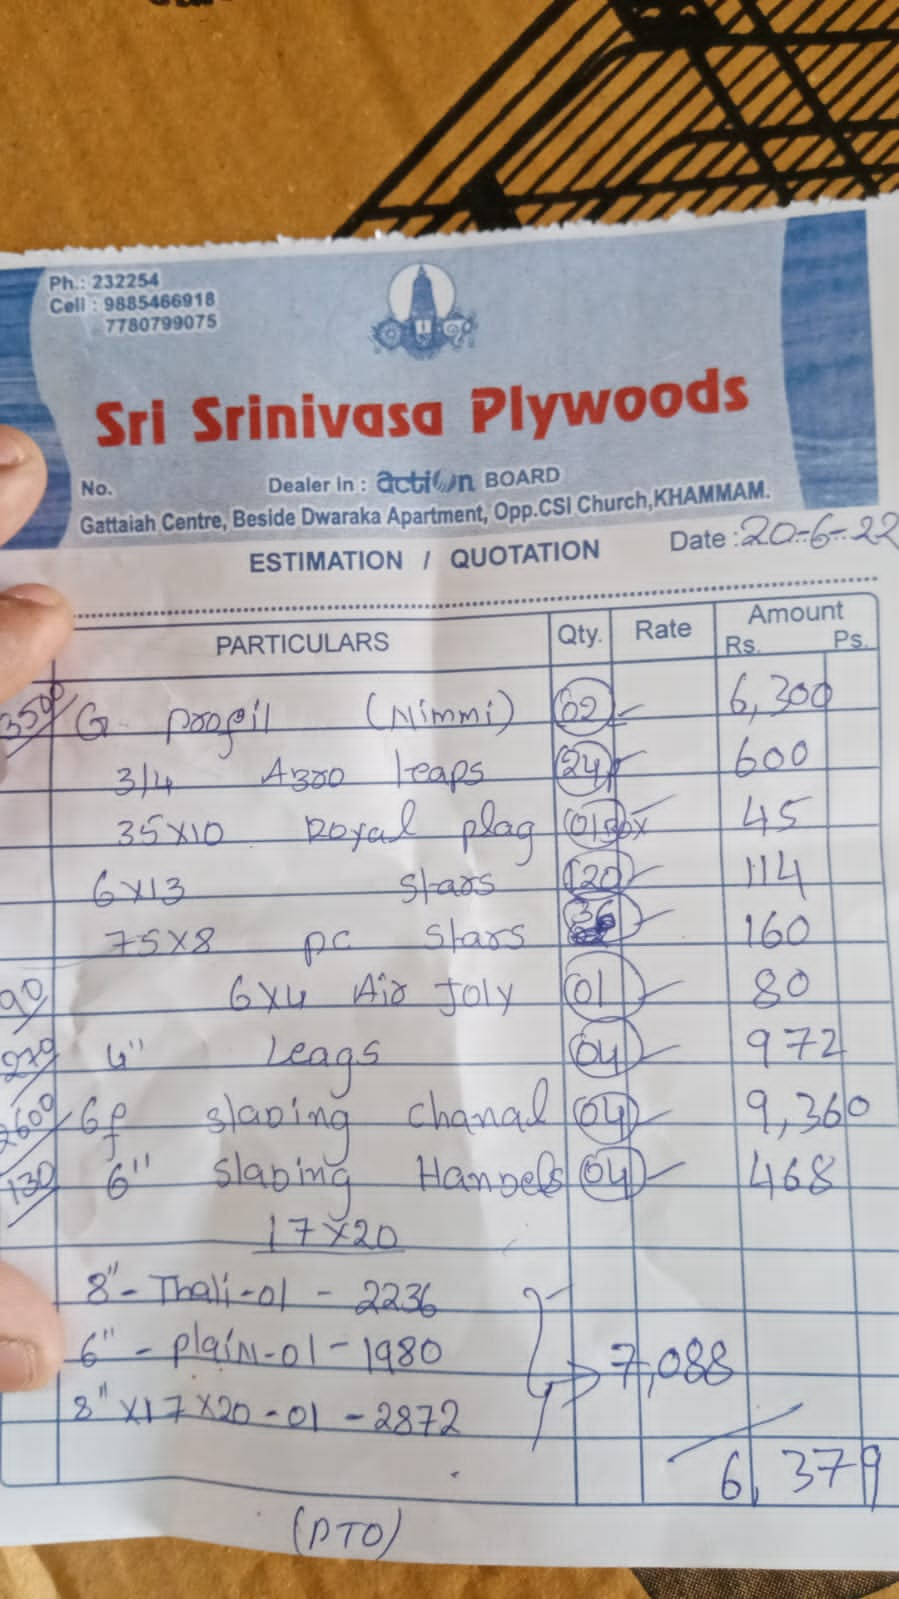 Ph.: 232254
Cell : 9885466918
7780799075
Sri Srinivasa Plywoods
No.
Dealer in : action BOARD
Gattaiah Centre, Beside Dwaraka Apartment, Opp.CSI Church,KHAMMAM.
ESTIMATION / QUOTATION Date : 20-6-22
PARTICULARS Qty. Rate Amount
Rs. Ps.
3500 G profil (Nimmi) 02 6,300
3/4 Azro leaps 24 600
35x10 Royal plag 01 Box 45
6x13 stars 120 114
75x8 pc stars 36 160
90 6x4 Air Joly 01 80
270 4" Leags 04 972
2600 6f slading chanal 04 9,360
130 6" slading Handels 04 468
17x20
8" - Thali - 01 - 2236
6" - plain - 01 - 1980 7,088
8" x17 x20 - 01 - 2872
6,379
(PTO)